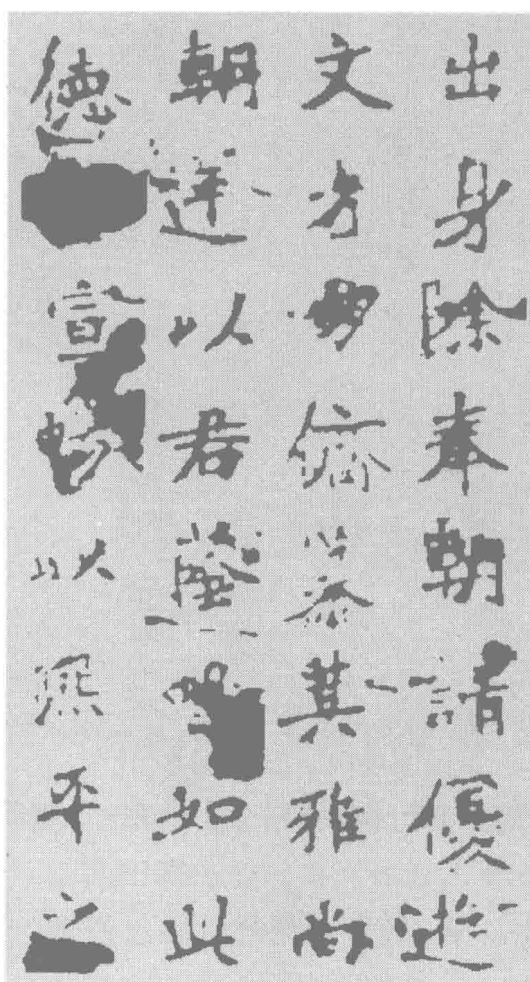 出身除奉朝請優遊
文朋儕慕其雅尚
朝廷以君蔭如此
德宣暢以熙平之